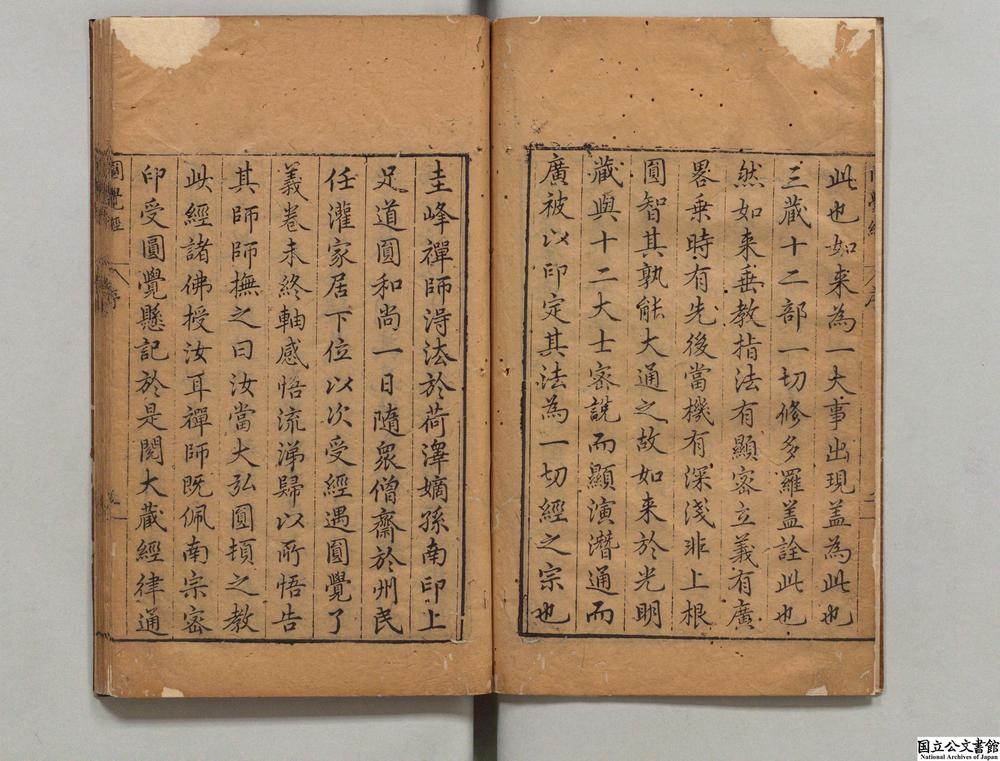 此也如来為一大事出現盖為此也
三蔵十二部一切修多羅盖詮此也
然如来垂教指法有顯密立義有廣
畧乗時有先後當機有深淺非上根
圓智其孰能大通之故如来於光明
蔵與十二大士密説而顯演潛通而
廣被以印定其法為一切經之宗也
圭峰禪師淂法於荷澤嫡孫南印上
足道圓和尚一日隨衆僧齋於州民
任灌家居下位以次受經遇圓覺了
義卷未終軸感悟流涕歸以所悟告
其師師撫之曰汝當大弘圓頓之教
此經諸佛授汝耳禪師既佩南宗密
印受圓覺懸記於是閱大蔵經律通
圓覺經 序
国立公文書館
National Archives of Japan